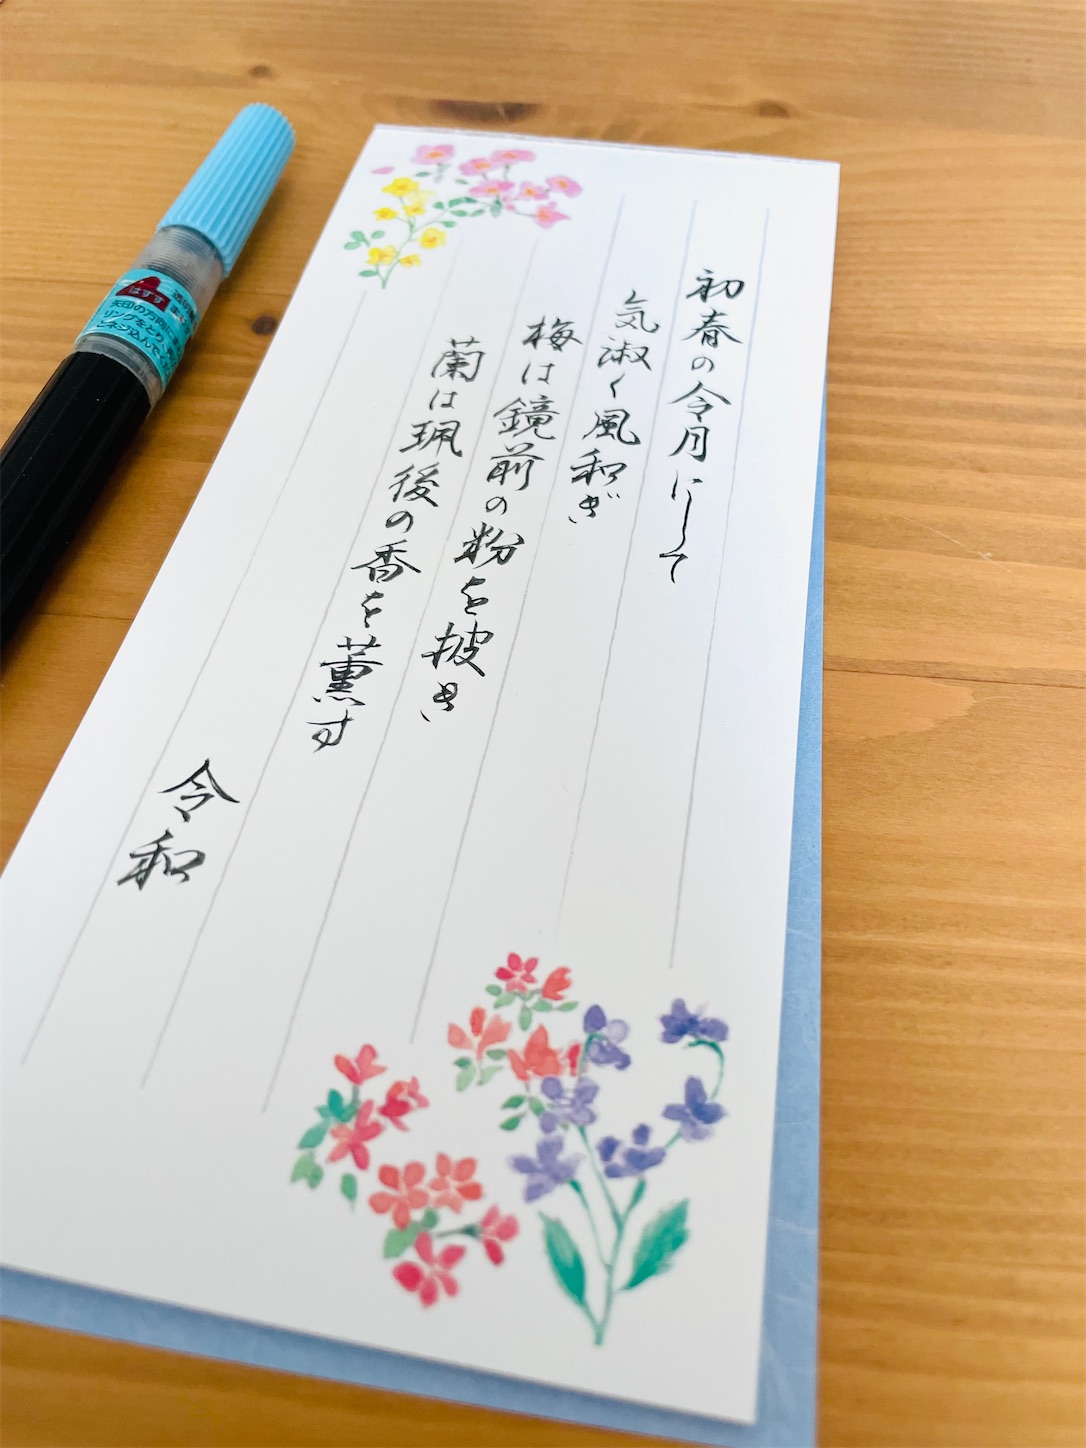 初春の令月にして
気淑く風和ぎ
梅は鏡前の粉を披き
蘭は珮後の香を薫す
令和
はずす
矢印の方向に
リングをとり、
ネジ込んで